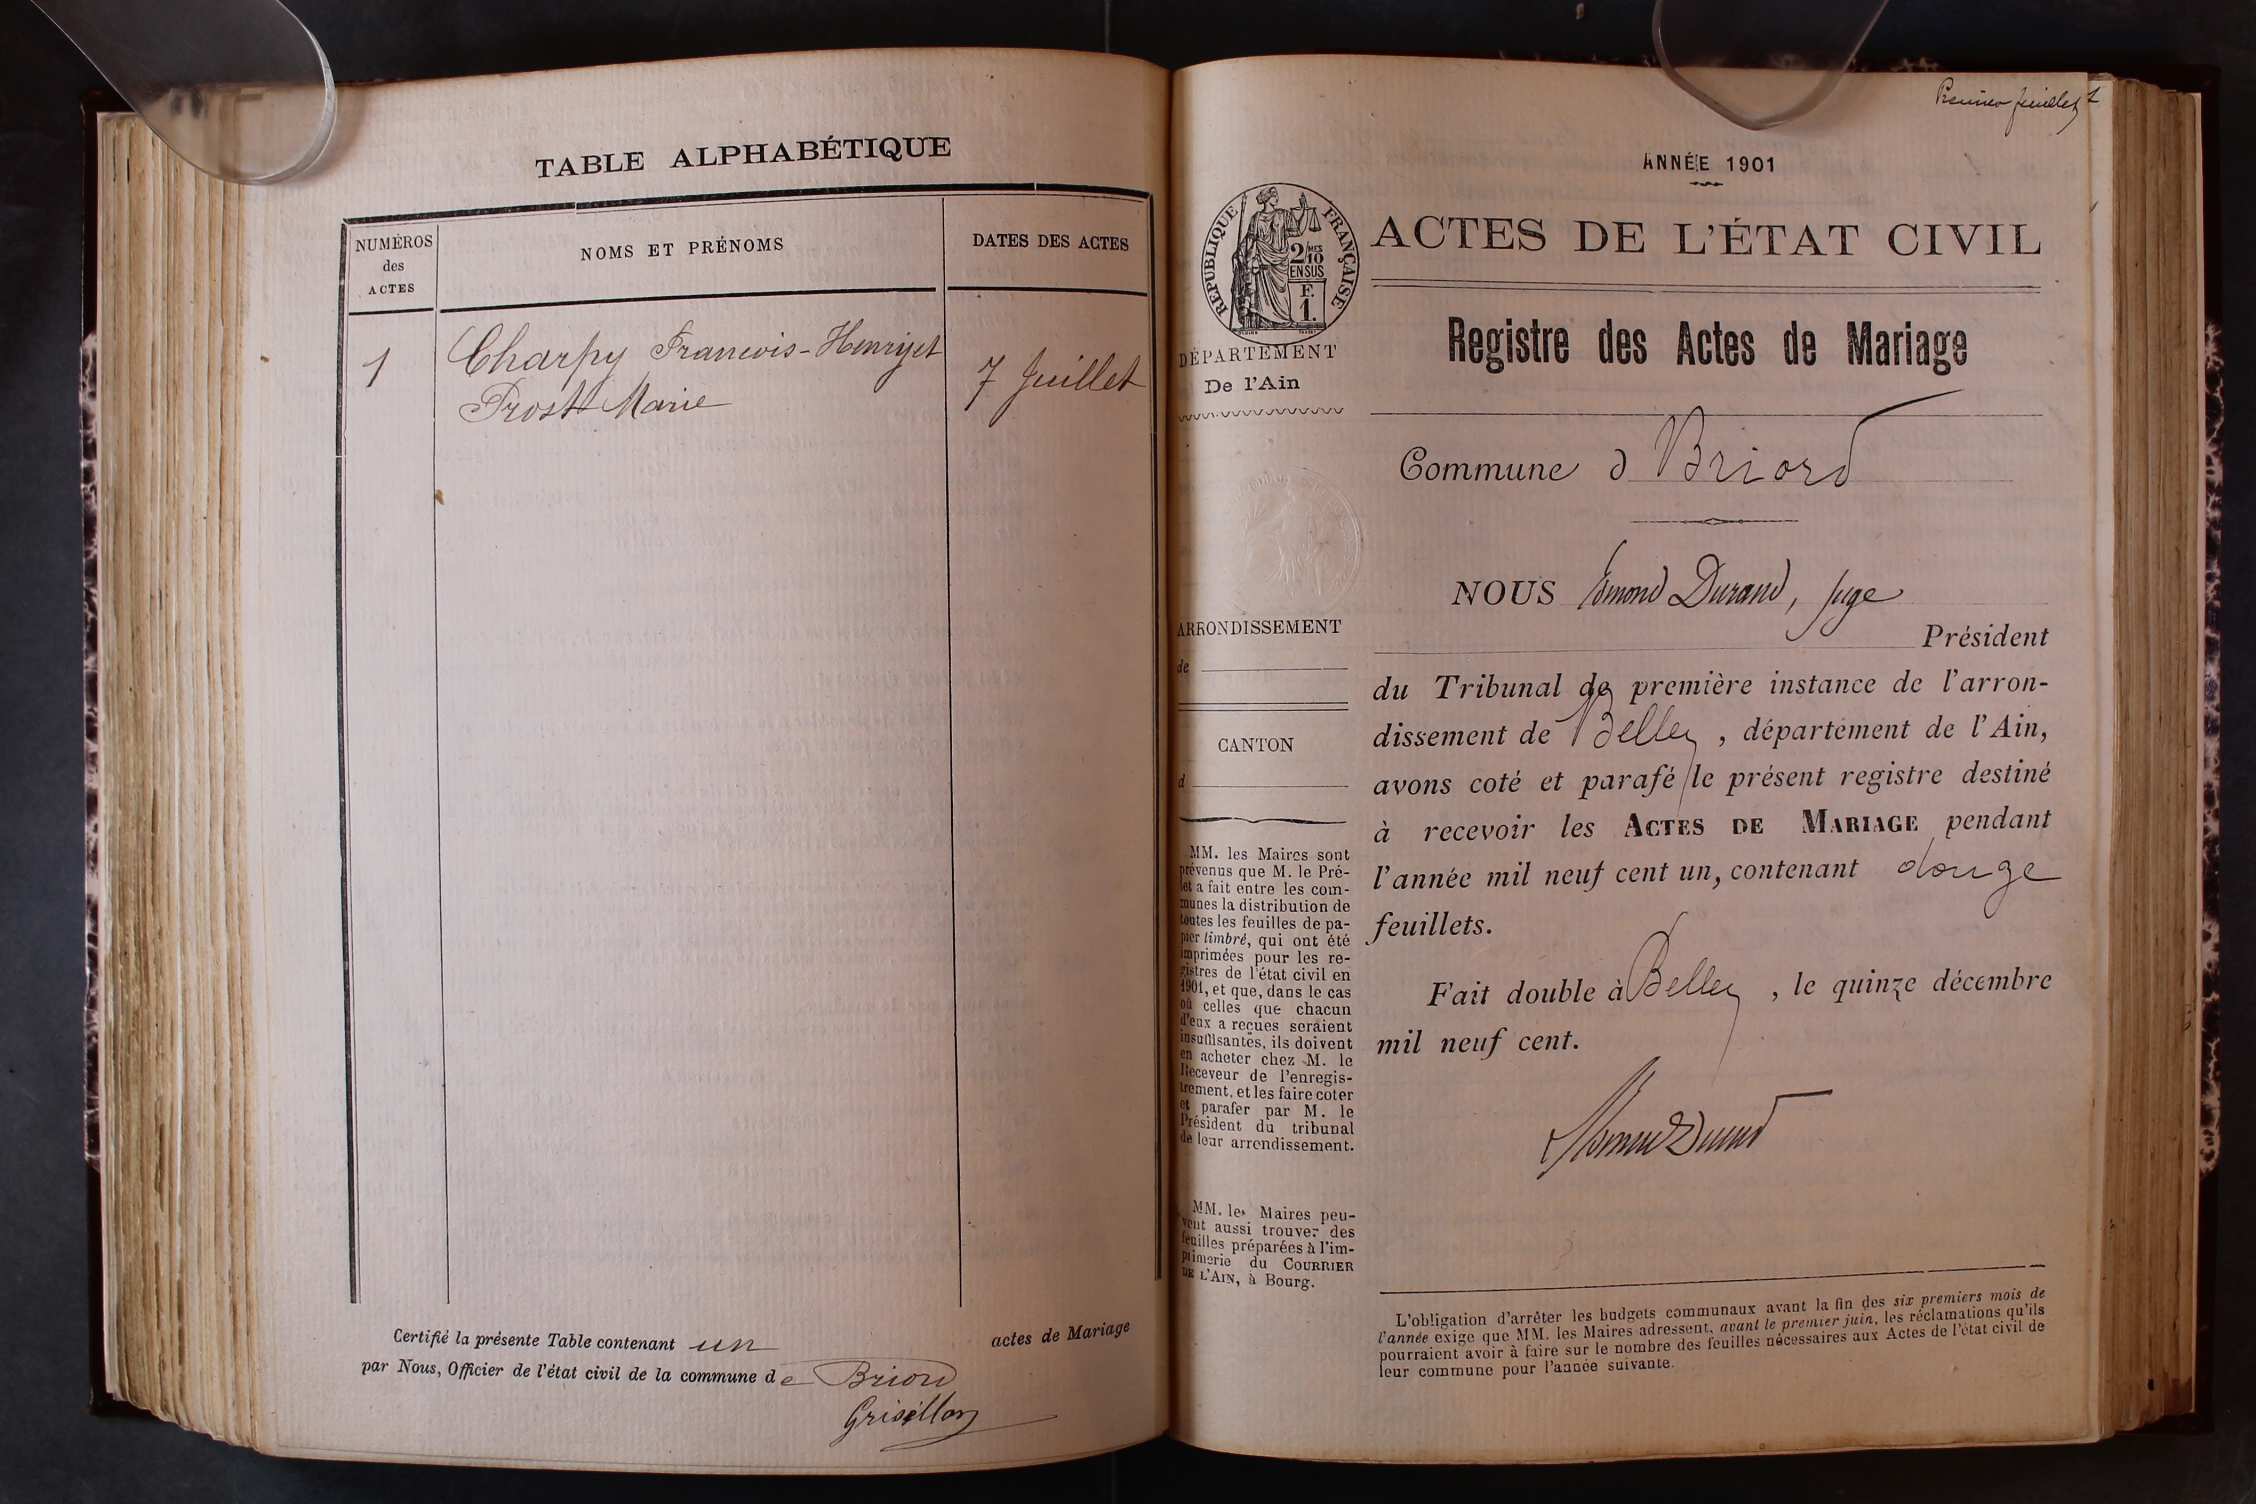 TABLE ALPHABÉTIQUE
NUMÉROS
des
ACTES
NOMS ET PRÉNOMS
DATES DES ACTES
1
Charpy François-Henri et
Prost Marie
7 Juillet
Certifié la présente Table contenant un actes de Mariage
par Nous, Officier de l'état civil de la commune de Briord
Grisillon
Premier feuillet
ANNÉE 1901
RÉPUBLIQUE FRANÇAISE
2/10
EN SUS
F.
1.
ACTES DE L'ÉTAT CIVIL
DÉPARTEMENT
De l'Ain
Registre des Actes de Mariage
Commune d Briord
ARRONDISSEMENT
de
CANTON
d
MM. les Maires sont
prévenus que M. le Pré-
fet a fait entre les com-
munes la distribution de
toutes les feuilles de pa-
pier timbré, qui ont été
imprimées pour les re-
gistres de l'état civil en
1901, et que, dans le cas
où celles que chacun
d'eux a reçues seraient
insuffisantes, ils doivent
en acheter chez M. le
Receveur de l'enregis-
trement, et les faire coter
et parafer par M. le
Président du tribunal
de leur arrondissement.
MM. les Maires peu-
vent aussi trouver des
feuilles préparées à l'im-
primerie du COURRIER
DE L'AIN, à Bourg.
NOUS Edmond Durand, juge
Président
du Tribunal de première instance de l'arron-
dissement de Belley, département de l'Ain,
avons coté et parafé le présent registre destiné
à recevoir les ACTES DE MARIAGE pendant
l'année mil neuf cent un, contenant douze
feuillets.
Fait double à Belley, le quinze décembre
mil neuf cent.
Edmond Durand
L'obligation d'arrêter les budgets communaux avant la fin des six premiers mois de
l'année exige que MM. les Maires adressent, avant le premier juin, les réclamations qu'ils
pourraient avoir à faire sur le nombre des feuilles nécessaires aux Actes de l'état civil de
leur commune pour l'année suivante.